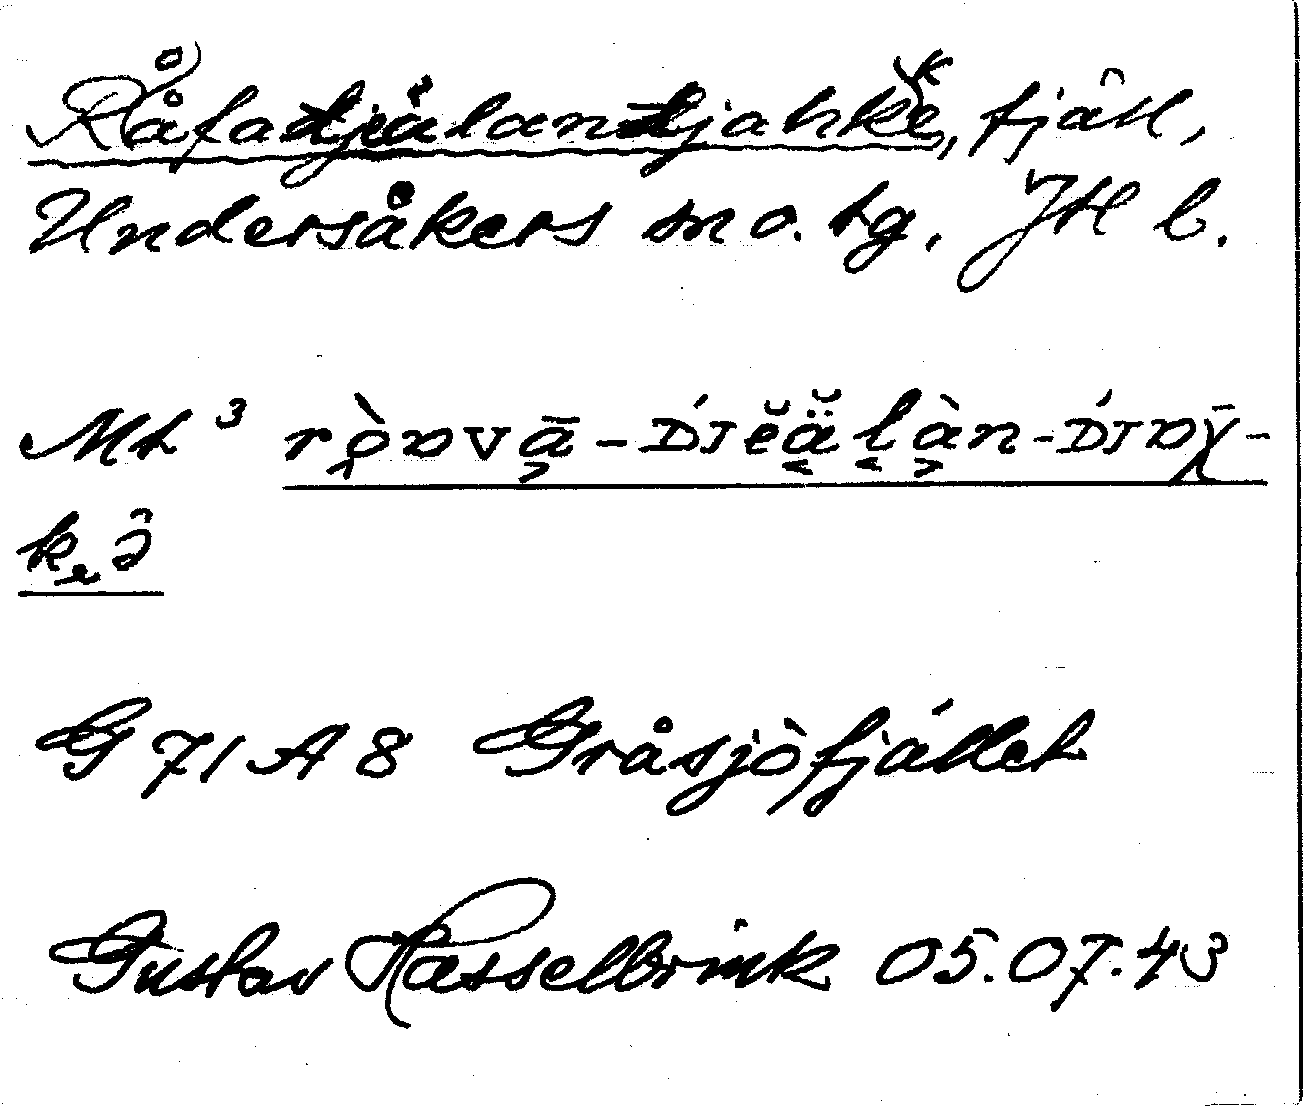 Råfatjälantjahke, fjäll,
Undersåkers sn o. tg. Jtl l.
Mt 3 ròɒvā - D́ɪĕä̆làn - D́ɪɒχ̄ -
kₑə̂
G 71 A 8 Gråsjöfjället
Gustav Hasselbrink 05.07.43